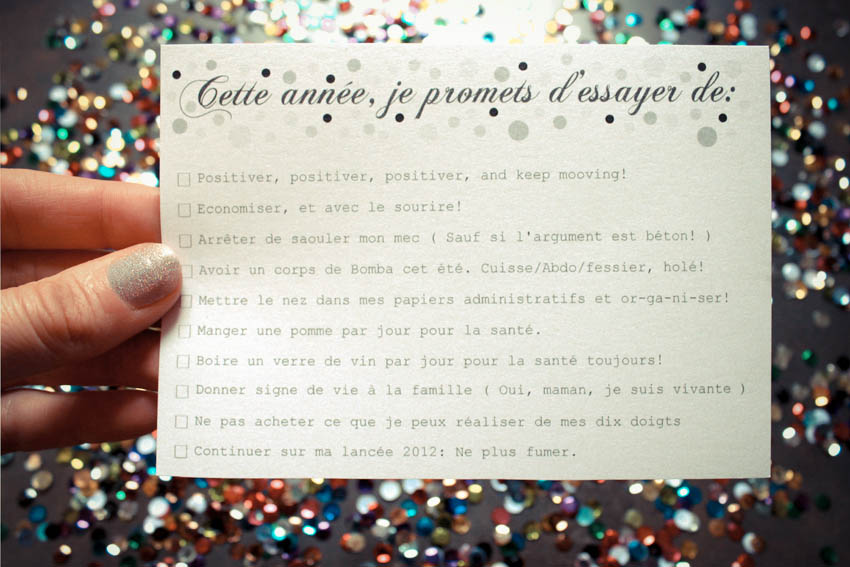 Cette année, je promets d'essayer de:
Positiver, positiver, positiver, and keep mooving!
Economiser, et avec le sourire!
Arrêter de saouler mon mec ( Sauf si l'argument est béton! )
Avoir un corps de Bomba cet été. Cuisse/Abdo/fessier, holé!
Mettre le nez dans mes papiers administratifs et or-ga-ni-ser!
Manger une pomme par jour pour la santé.
Boire un verre de vin par jour pour la santé toujours!
Donner signe de vie à la famille ( Oui, maman, je suis vivante )
Ne pas acheter ce que je peux réaliser de mes dix doigts
Continuer sur ma lancée 2012: Ne plus fumer.